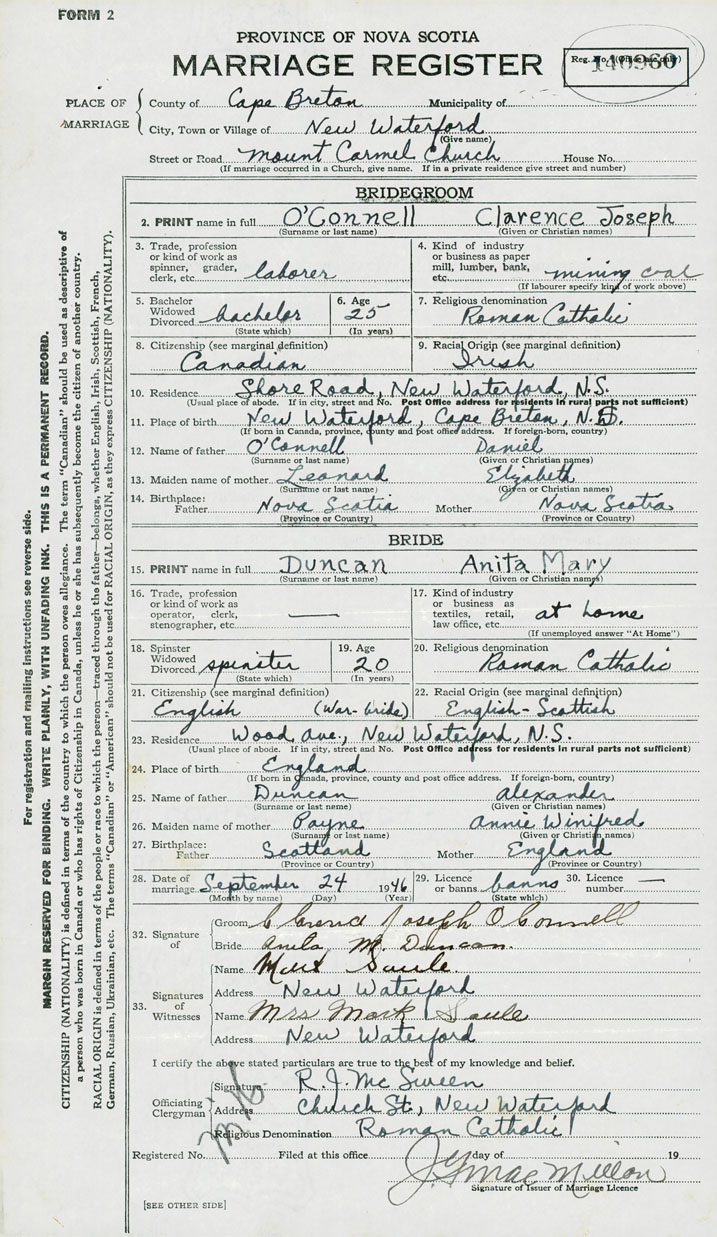 FORM 2
PROVINCE OF NOVA SCOTIA
MARRIAGE REGISTER
Reg. No. (Office use only)
140960
PLACE OF MARRIAGE
County of Cape Breton Municipality of
City, Town or Village of New Waterford
(Give name)
Street or Road Mount Carmel Church House No.
(If marriage occurred in a Church, give name. If in a private residence give street and number)
BRIDEGROOM
2. PRINT name in full O'Connell Clarence Joseph
(Surname or last name) (Given or Christian names)
3. Trade, profession or kind of work as spinner, grader, clerk, etc. laborer
4. Kind of industry or business as paper mill, lumber, bank, etc. mining coal
(If labourer specify kind of work above)
5. Bachelor Widowed Divorced bachelor
(State which)
6. Age 25
(In years)
7. Religious denomination
Roman Catholic
8. Citizenship (see marginal definition)
Canadian
9. Racial Origin (see marginal definition)
Irish
10. Residence Shore Road, New Waterford, N.S.
(Usual place of abode. If in city, street and No. Post Office address for residents in rural parts not sufficient)
11. Place of birth New Waterford, Cape Breton, N.S.
(If born in Canada, province, county and post office address. If foreign-born, country)
12. Name of father O'Connell Daniel
(Surname or last name) (Given or Christian names)
13. Maiden name of mother Leonard Elizabeth
(Surname or last name) (Given or Christian names)
14. Birthplace: Father Nova Scotia Mother Nova Scotia
(Province or Country) (Province or Country)
BRIDE
15. PRINT name in full Duncan Anita Mary
(Surname or last name) (Given or Christian names)
16. Trade, profession or kind of work as operator, clerk, stenographer, etc. —
17. Kind of industry or business as textiles, retail, law office, etc. at home
(If unemployed answer "At Home")
18. Spinster Widowed Divorced spinster
(State which)
19. Age 20
(In years)
20. Religious denomination
Roman Catholic
21. Citizenship (see marginal definition)
English (War-bride)
22. Racial Origin (see marginal definition)
English-Scottish
23. Residence Wood Ave., New Waterford, N.S.
(Usual place of abode. If in city, street and No. Post Office address for residents in rural parts not sufficient)
24. Place of birth England
(If born in Canada, province, county and post office address. If foreign-born, country)
25. Name of father Duncan Alexander
(Surname or last name) (Given or Christian names)
26. Maiden name of mother Payne Annie Winifred
(Surname or last name) (Given or Christian names)
27. Birthplace: Father Scotland Mother England
(Province or Country) (Province or Country)
28. Date of marriage September 24 1946
(Month by name) (Day) (Year)
29. Licence or banns banns
(State which)
30. Licence number —
32. Signature of
Groom Joseph O'Connell
Bride Anita M. Duncan.
33. Signatures of Witnesses
Name Saule
Address New Waterford
Name Mrs Mark Saule
Address New Waterford
I certify the above stated particulars are true to the best of my knowledge and belief.
Officiating Clergyman
Signature R. J. McSween
Address Church St., New Waterford
Religious Denomination Roman Catholic
Registered No. Filed at this office day of 19
J. G. MacMillan
Signature of Issuer of Marriage Licence
[SEE OTHER SIDE]
For registration and mailing instructions see reverse side.
MARGIN RESERVED FOR BINDING. WRITE PLAINLY, WITH UNFADING INK. THIS IS A PERMANENT RECORD.
CITIZENSHIP (NATIONALITY) is defined in terms of the country to which the person owes allegiance. The term "Canadian" should be used as descriptive of
a person who was born in Canada or who has rights of Citizenship in Canada, unless he or she has subsequently become the citizen of another country.
RACIAL ORIGIN is defined in terms of the people or race to which the person—traced through the father—belongs, whether English, Irish, Scottish, French,
German, Russian, Ukrainian, etc. The terms "Canadian" or "American" should not be used for RACIAL ORIGIN, as they express CITIZENSHIP (NATIONALITY).